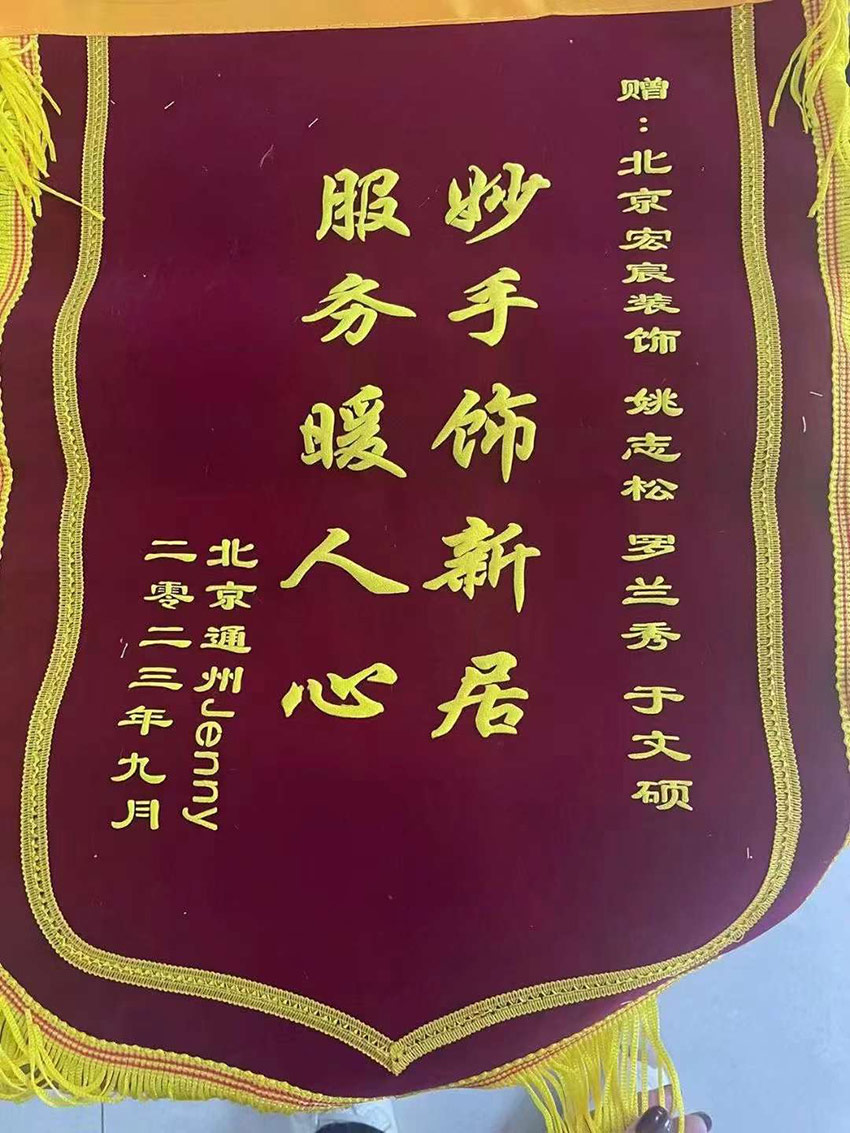 赠：北京宏宸装饰 姚志松 罗兰秀 于文硕
妙手饰新居
服务暖人心
北京通州Jenny
二零二三年九月